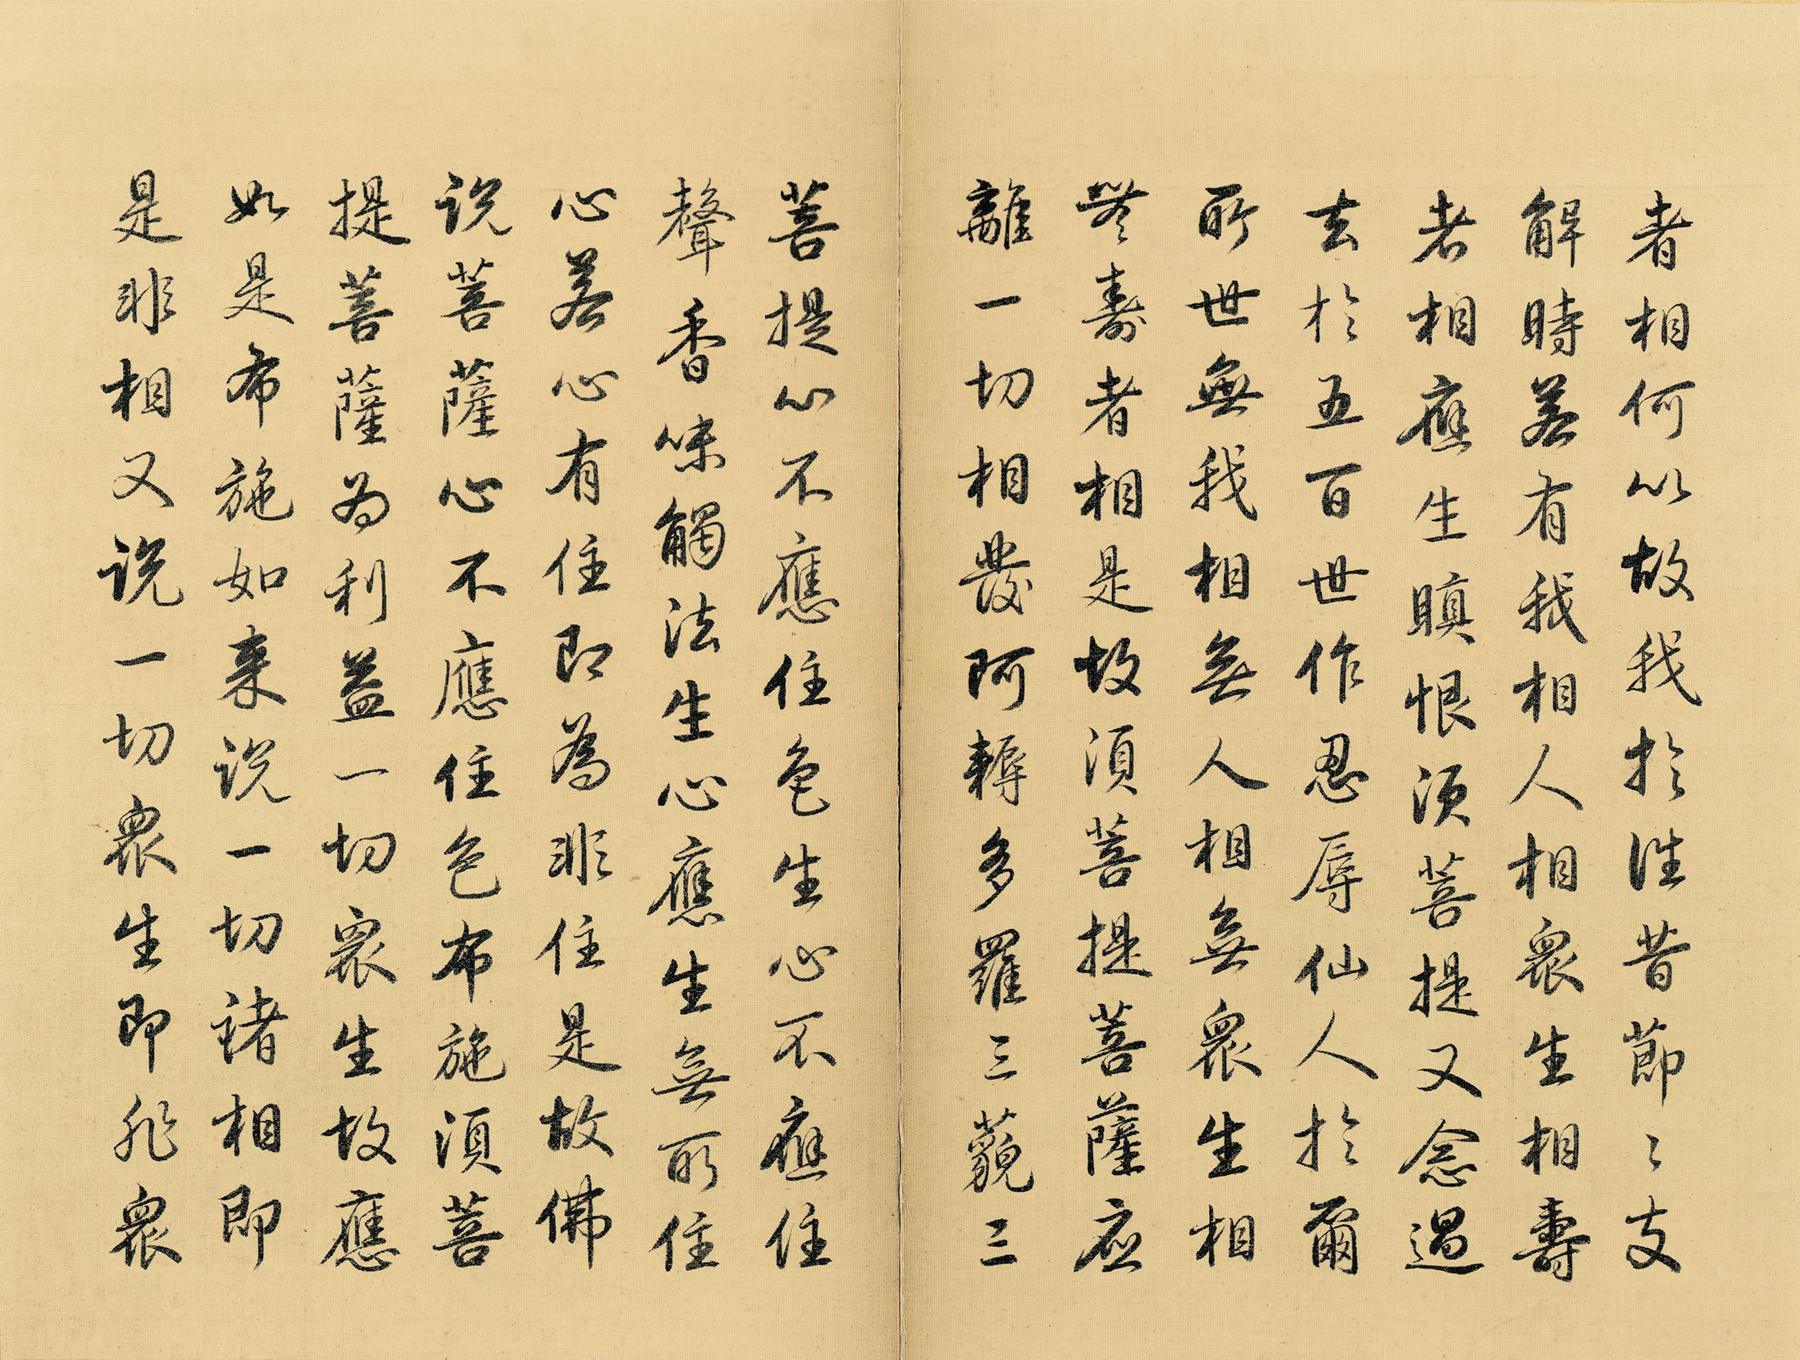 者相何以故我於往昔節〻支
解時若有我相人相衆生相壽
者相應生瞋恨須菩提又念過
去於五百世作忍辱仙人於爾
所世無我相無人相無衆生相
無壽者相是故須菩提菩薩應
離一切相發阿耨多羅三藐三
菩提心不應住色生心不應住
聲香味觸法生心應生無所住
心若心有住即為非住是故佛
説菩薩心不應住色布施須菩
提菩薩為利益一切衆生故應
如是布施如来説一切諸相即
是非相又説一切衆生即非衆